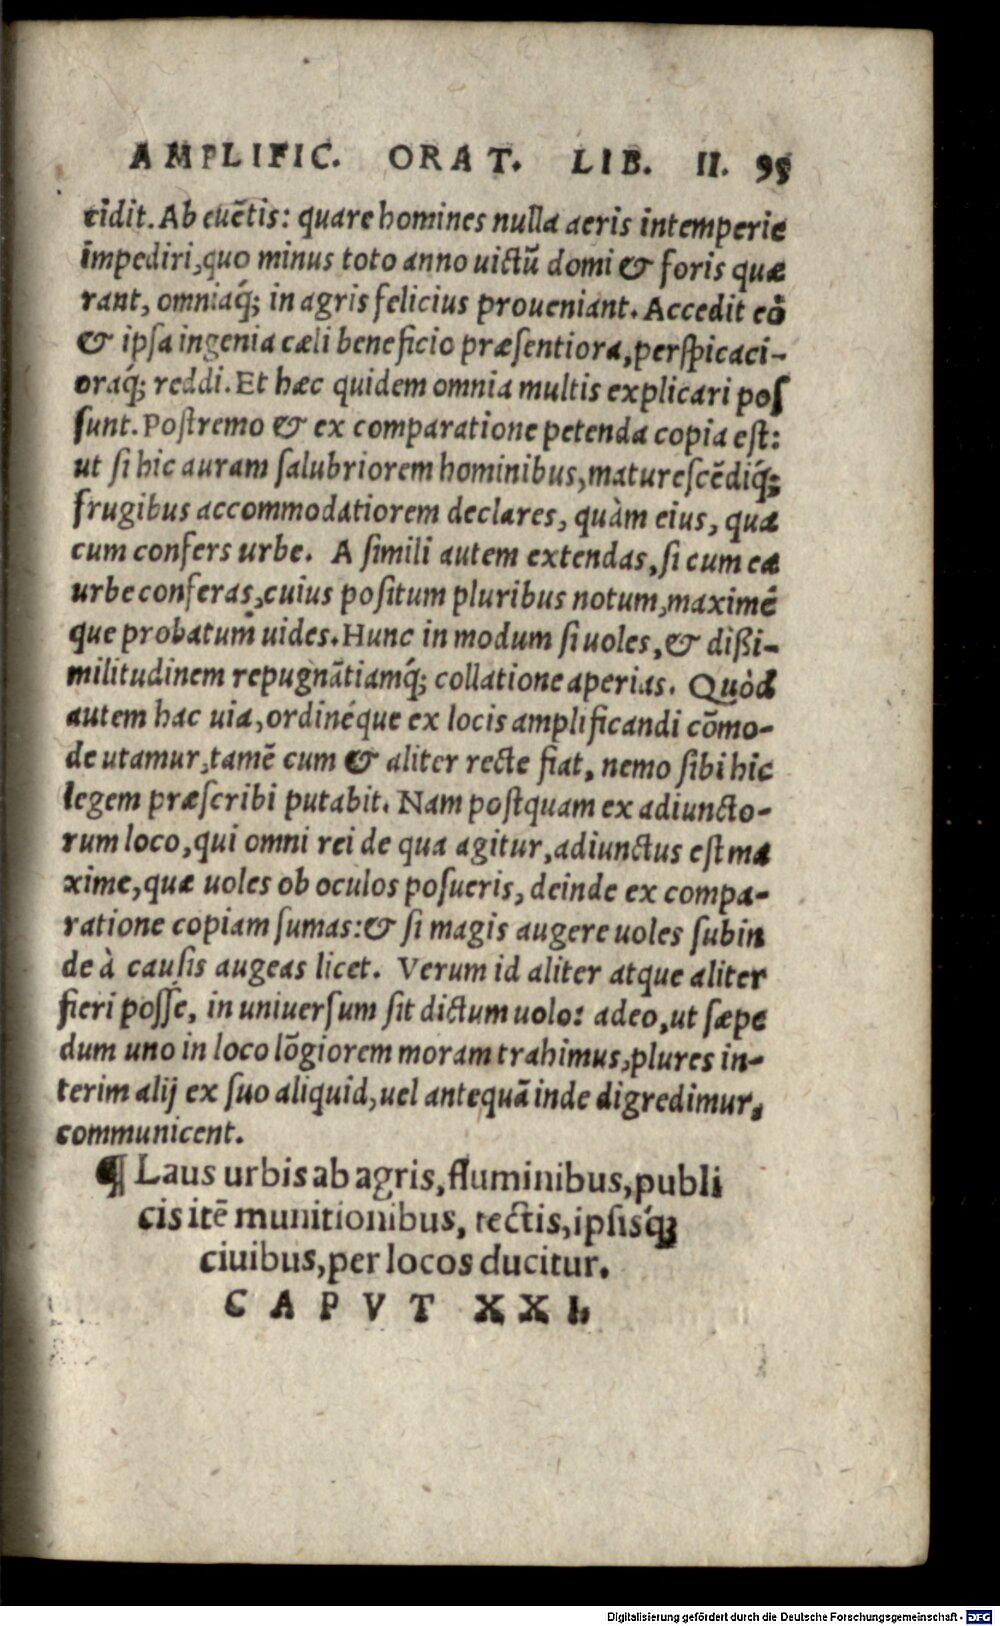 AMPLIFIC. ORAT. LIB. II. 95
cidit. Ab euētis: quare homines nulla aeris intemperie
impediri, quo minus toto anno uictū domi & foris quæ
rant, omniaq́; in agris felicius proueniant. Accedit eò
& ipsa ingenia cæli beneficio præsentiora, perspicaci-
oraq́; reddi. Et hæc quidem omnia multis explicari pos
sunt. Postremo & ex comparatione petenda copia est:
ut si hic auram salubriorem hominibus, maturescēdiq́;
frugibus accommodatiorem declares, quàm eius, qua
cum confers urbe. A simili autem extendas, si cum ea
urbe conferas, cuius positum pluribus notum, maximé
que probatum uides. Hunc in modum si uoles, & dißi-
militudinem repugnātiamq́; collatione aperias. Quòd
autem hac uia, ordinéque ex locis amplificandi cōmo-
de utamur, tamē cum & aliter recte fiat, nemo sibi hic
legem præscribi putabit. Nam postquam ex adiuncto-
rum loco, qui omni rei de qua agitur, adiunctus est ma
xime, quæ uoles ob oculos posueris, deinde ex compa-
ratione copiam sumas: & si magis augere uoles subin
de à causis augeas licet. Verum id aliter atque aliter
fieri posse, in uniuersum sit dictum uolo: adeo, ut sæpe
dum uno in loco lōgiorem moram trahimus, plures in-
terim alij ex suo aliquid, uel antequā inde digredimur,
communicent.
¶ Laus urbis ab agris, fluminibus, publi
cis itē munitionibus, tectis, ipsisq́;
ciuibus, per locos ducitur.
CAPVT XXI.
Digitalisierung gefördert durch die Deutsche Forschungsgemeinschaft - DFG